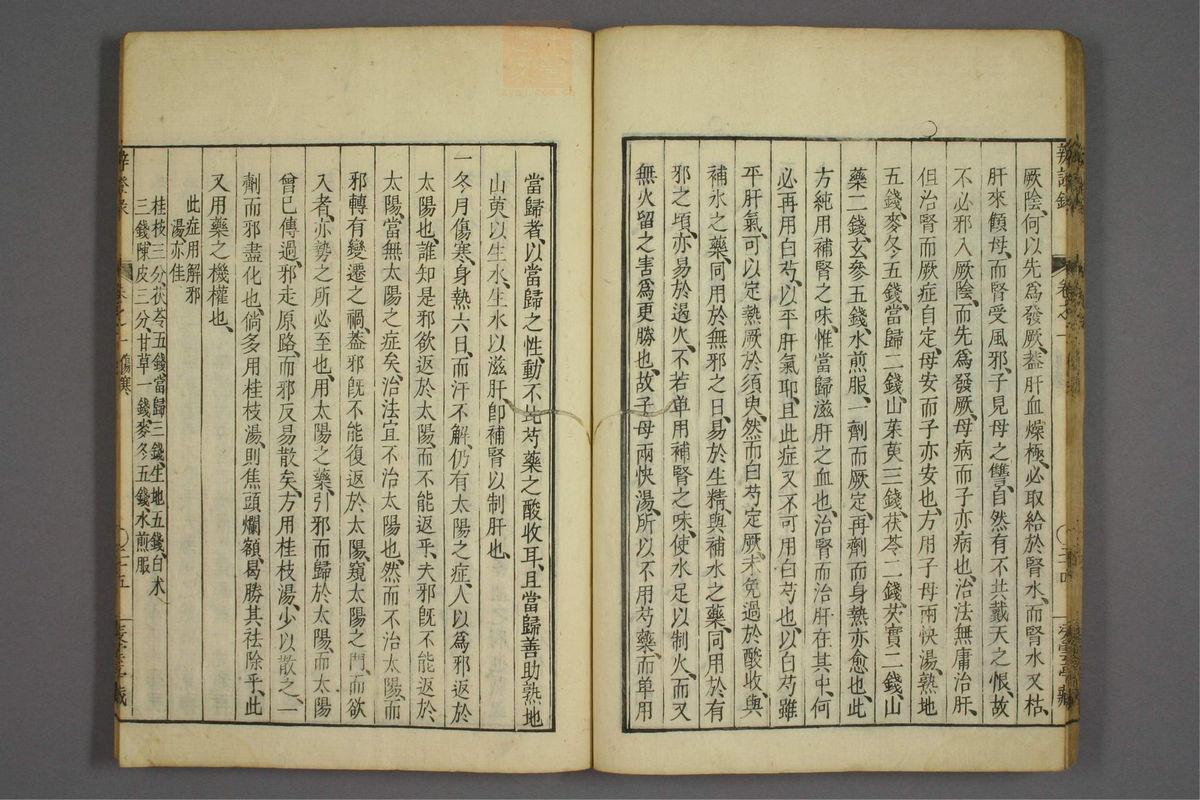 厥陰、何以先爲發厥、葢肝血燥極、必取給於腎水、而腎水又枯、
肝來顧母、而腎受風邪、子見母之讐、自然有不共戴天之恨、故
不必邪入厥陰、而先爲發厥、母病而子亦病也、治法無庸治肝、
但治腎而厥症自定、母安而子亦安也、方用子母兩快湯、熟地
五錢、麥冬五錢、當歸二錢、山茱萸三錢、茯苓二錢、芡實二錢、山
藥二錢、玄參五錢、水煎服、一劑而厥定、再劑而身熱亦愈也、此
方純用補腎之味、惟當歸滋肝之血也、治腎而治肝在其中、何
必再用白芍、以平肝氣耶、且此症又不可用白芍也、以白芍雖
平肝氣、可以定熱厥於須臾、然而白芍定厥、未免過於酸收、與
補水之藥、同用於無邪之日、易於生精、與補水之藥、同用於有
邪之頃、亦易於遏火、不若单用補腎之味、使水足以制火、而又
無火留之害爲更勝也、故子母兩快湯、所以不用芍藥、而单用
辨證錄
卷之一
二十四
當歸者、以當歸之性動、不比芍藥之酸收耳、且當歸善助熟地
山萸以生水、生水以滋肝、卽補腎以制肝也、
一冬月傷寒、身熱六日、而汗不解、仍有太陽之症、人以爲邪返於
太陽也、誰知是邪欲返於太陽、而不能返乎、夫邪旣不能返於
太陽、當無太陽之症矣、治法宜不治太陽也、然而不治太陽、而
邪轉有變遷之禍、葢邪旣不能復返於太陽、窺太陽之門、而欲
入者、亦勢之所必至也、用太陽之藥、引邪而歸於太陽、而太陽
曾已傳過、邪走原路、而邪反易散矣、方用桂枝湯、少以散之、一
劑而邪盡化也、倘多用桂枝湯、則焦頭爛額、曷勝其祛除乎、此
又用藥之機權也、
此症用解邪
湯亦佳
桂枝三分、茯苓五錢、當歸三錢、生地五錢、白术
三錢、陳皮三分、甘草一錢、麥冬五錢、水煎服
傷寒
二十五